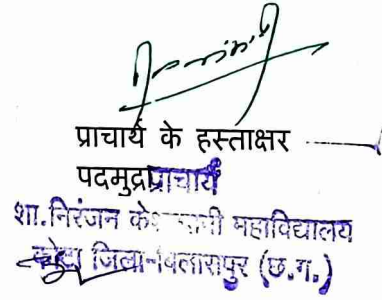 प्राचार्य के हस्ताक्षर
पदमुद्रा प्राचार्य
शा.निरंजन महाविद्यालय
कोटा जिला-बिलासपुर (छ.ग.)